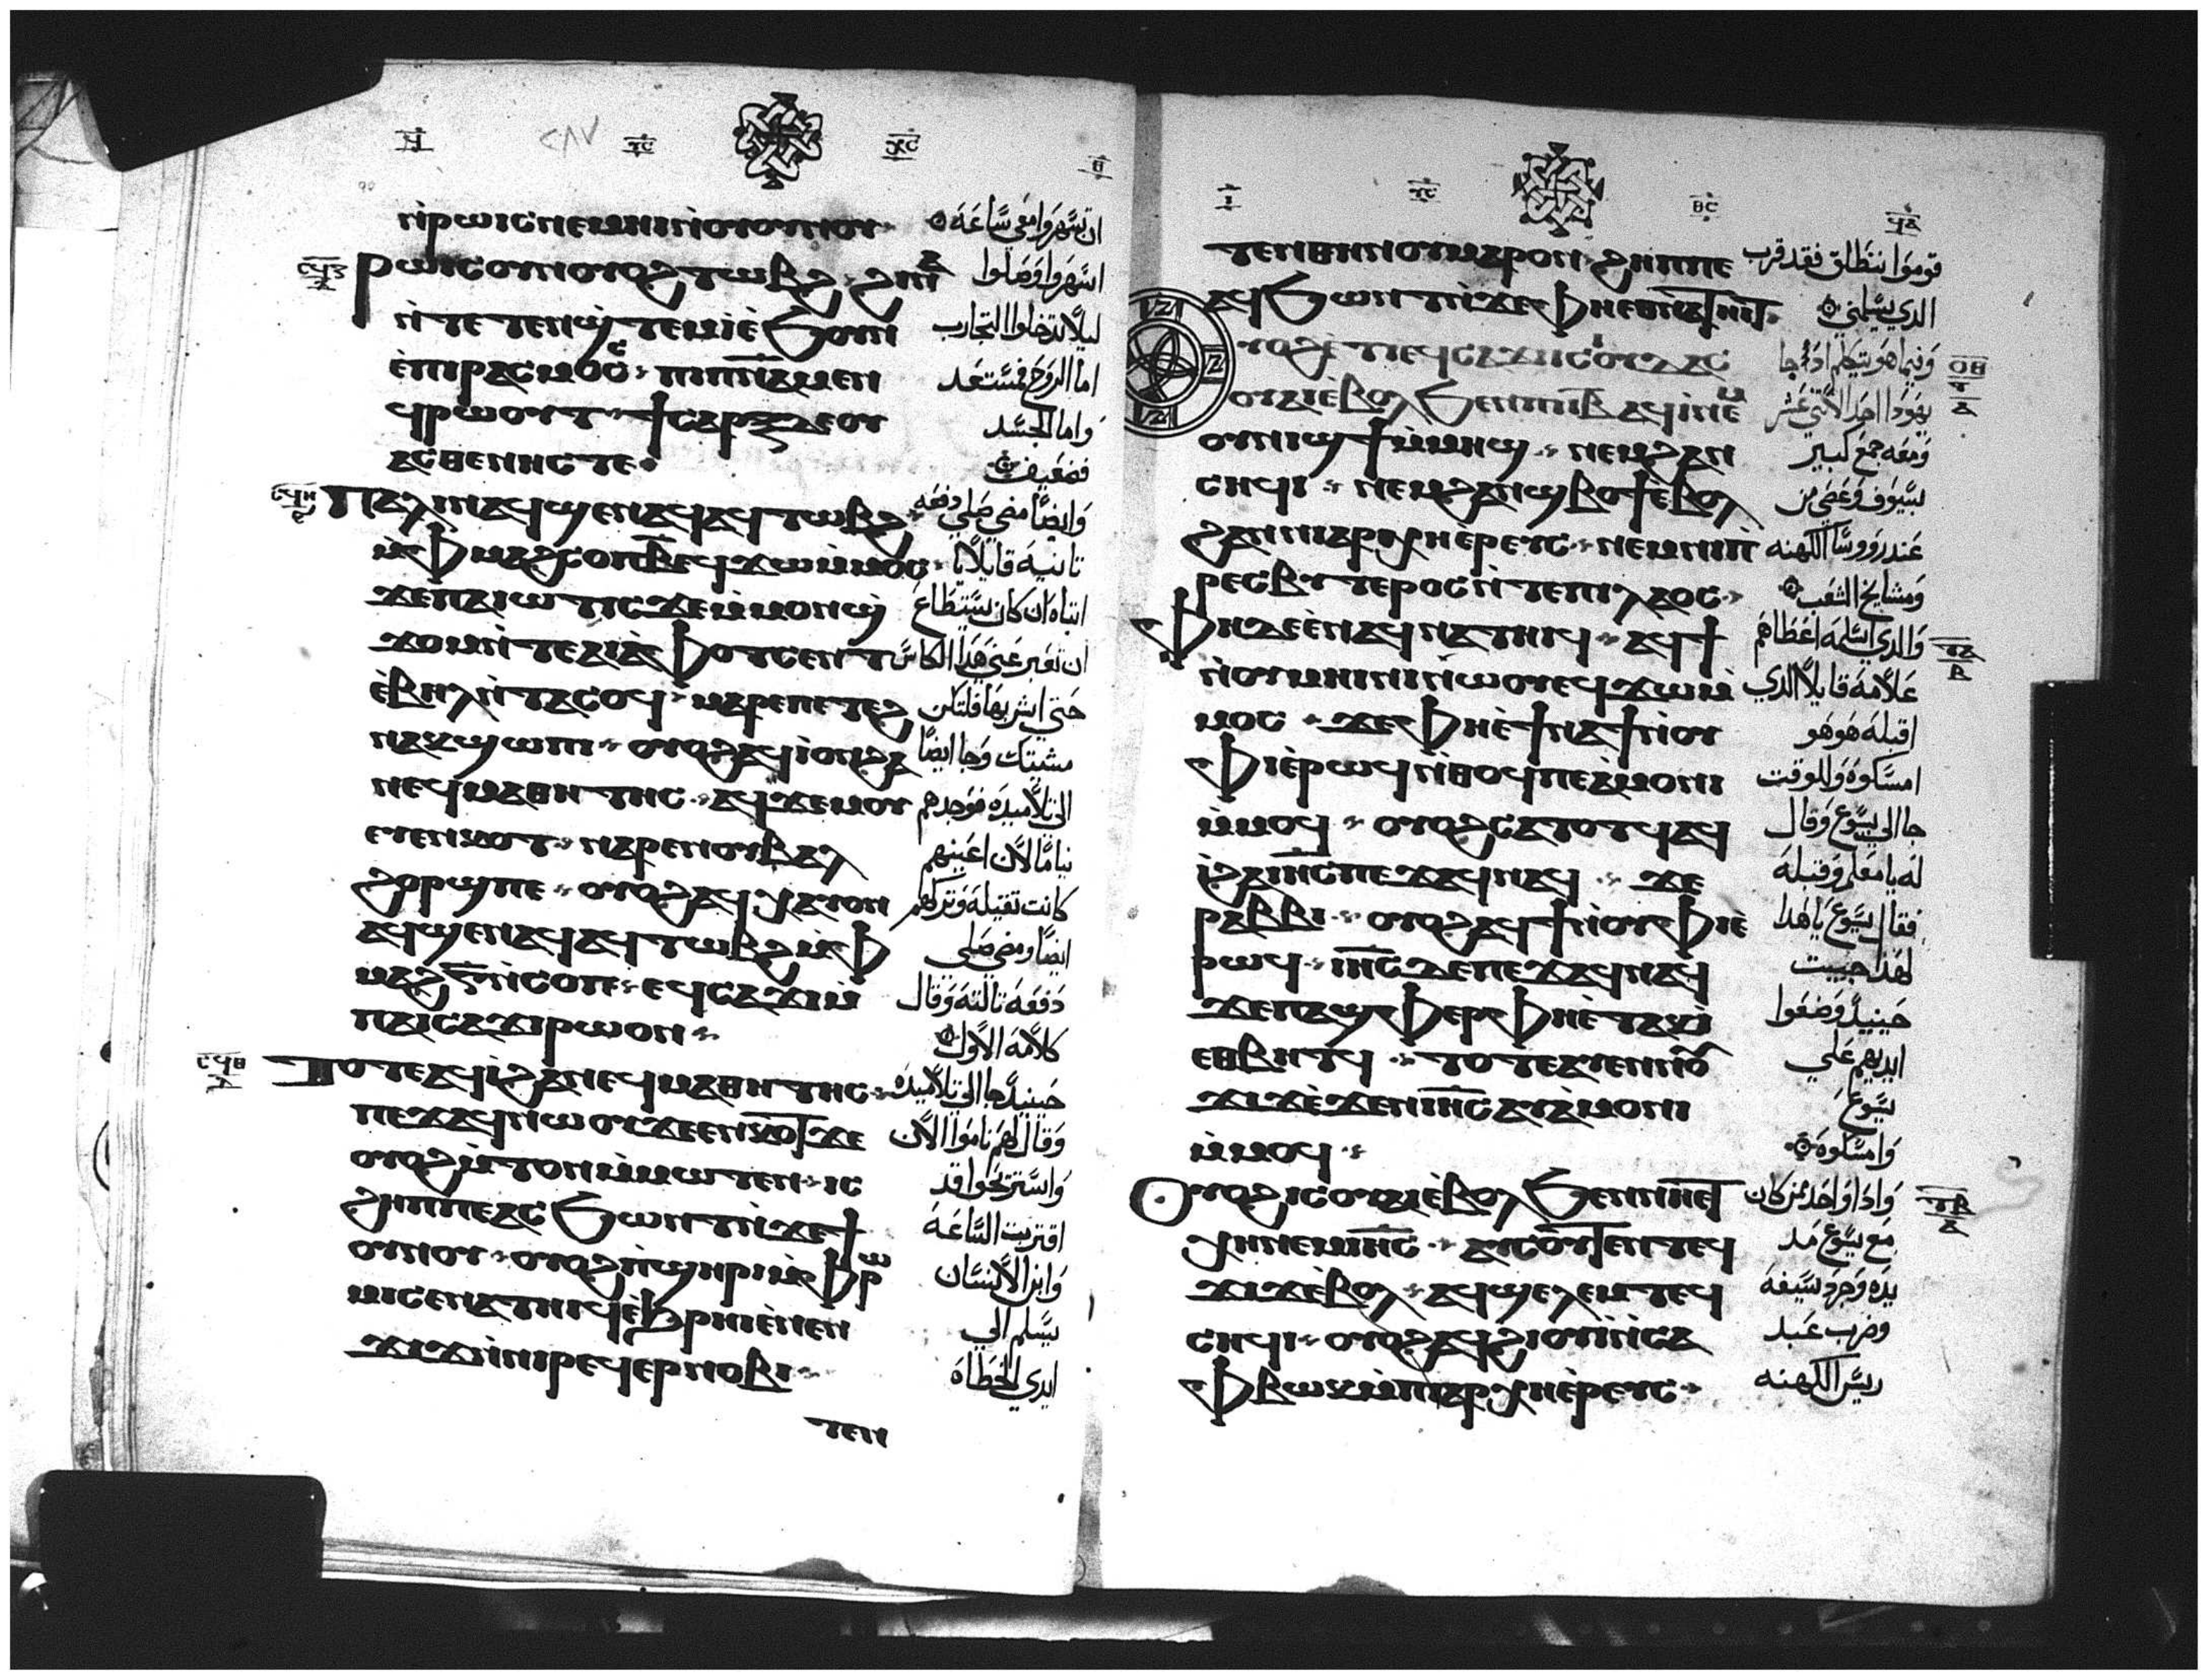 ⲛ̀ⲣⲱⲓⲥ ⲛⲉⲙⲏⲓ ⲛ̀ⲟⲩⲟⲩⲛⲟⲩ ان تسهروا معي ساعه
ⲥϥⲍ ⲣⲱⲓⲥ ⲟⲩⲛ ⲟⲩⲟϩ ⲧⲱⲃϩ ϩⲓⲛⲁ اسهروا وصلوا
ⲛ̀ⲧⲉⲧⲉⲛϣ̀ⲧⲉⲙⲓ̀ ⲉ̀ϧⲟⲩⲛ ليلا تدخلوا التجارب
ⲉ̀ⲡⲓⲣⲁⲥⲙⲟⲥ ⲡⲓⲡ̅ⲛ̅ⲁ̅ ⲙⲉⲛ اما الروح فمستعد
ϥⲣⲱⲟⲩⲧ ϯⲥⲁⲣⲝ ⲇⲉ ⲟⲩ واما الجسد
ⲁⲥⲑⲉⲛⲏⲥ ⲧⲉ فضعيف
ⲥϥⲏ ⲡⲁⲗⲓⲛ ⲁϥϣⲉⲛⲁϥ ⲁϥⲧⲱⲃϩ وايضا مضي صلي دفعه
ⲙ̀ⲫⲙⲁϩⲥⲟⲡ ⲃ̅ ⲉϥϫⲱ ⲙ̀ⲙⲟⲥ تانيه قايلا يا
ϫⲉ ⲡⲁⲓⲱⲧ ⲓⲥϫⲉ ⲙ̀ⲙⲟⲛ ϣ̀ ابتاه ان كان يستطاع
ϫⲟⲙ ⲛ̀ⲧⲉ ⲡⲁⲓⲁ̀ⲫⲟⲧ ⲥⲉⲛⲧ ان تعبر عني هذا الكاس
ⲉ̀ⲃⲏⲗ ⲛ̀ⲧⲁⲥⲟϥ ⲙⲁⲣⲉ ⲡⲉⲧⲉϩ حتي اشربها فلتكن
ⲛⲁⲕ ϣⲱⲡⲓ ⲟⲩⲟϩ ⲁϥⲓ̀ ⲟⲛ ϩⲁ مشيتك وجا ايضا
ⲛⲉϥⲙⲁⲑⲏⲧⲏⲥ ⲁϥϫⲉⲙⲟⲩ الي تلاميده فوجدهم
ⲉⲩⲉⲛⲕⲟⲧ ⲛⲁⲣⲉ ⲛⲟⲩⲃⲁⲗ نياما لان اعينهم
ϩⲟⲣϣ ⲡⲉ ⲟⲩⲟϩ ⲁϥⲭⲁⲩ ⲟⲛ كانت تقيله وتركهم
ⲁϥϣⲉⲛⲁϥ ⲁϥⲧⲱⲃϩ ⲙ̀ⲫ ايضا ومضي صلي
ⲙⲁϩⲅ̅ ⲛ̀ⲥⲟⲡ ⲉϥⲥⲁϫⲓ ⲙ̀ دفعه تالته وقال
ⲡⲁⲓⲥⲁϫⲓ ⲣⲱ ⲟⲛ كلامه الاول
ⲥϥⲑ ⲧⲟⲧⲉ ⲁϥⲓ̀ ϩⲁ ⲛⲉϥⲙⲁⲑⲏⲧⲏⲥ حينيد جا الي تلاميده
ⲡⲉϫⲁϥ ⲛⲱⲟⲩ ϫⲉ ⲉⲛⲕⲟⲧ ϫⲉ وقال لهم ناموا الان
ⲟⲩⲟϩ ⲙ̀ⲧⲟⲛ ⲙ̀ⲙⲱⲧⲉⲛ ⲓⲥ واستريحوا قد
ϩⲏⲡⲡⲉ ⲁⲥϧⲱⲛⲧ ⲛ̀ϫⲉ ϯ اقتربت الساعه
ⲟⲩⲛⲟⲩ ⲟⲩⲟϩ ⲡ̀ϣⲏⲣⲓ ⲙ̀ⲫⲣⲱ وابن الانسان
ⲙⲓ ⲥⲉⲛⲁⲧⲏⲓϥ ⲉ̀ϧⲣⲏⲓ ⲉ̀ⲛⲉⲛ يسلم الي
ϫⲓϫ ⲛ̀ⲛⲓⲣⲉϥⲉⲣⲛⲟⲃⲓ ايدي الخطاه
ⲧⲉⲛ
ⲧⲉⲛ ⲑⲏⲛⲟⲩ ⲙⲁⲣⲟⲛ ϩⲏⲡⲡⲉ قوموا ننطلق فقد قرب
ⲁϥϧⲱⲛⲧ ⲛ̀ϫⲉ ⲫⲏⲉⲑⲛⲁⲧⲏⲓⲧ الدي يسلمني
ⲟⲩⲟϩ ⲉ̀ⲧⲓ ⲉϥⲥⲁϫⲓ ⲓⲥ ⲓⲟⲩⲇⲁⲥ وفيما هو يتكلم ادا جا
ⲟⲩⲁⲓ ⲉ̀ⲃⲟⲗ ϧⲉⲛ ⲡⲓⲓ̅ⲃ̅ ⲁϥⲓ̀ ⲛⲉⲙ يهودا احد الاتني عشر
ⲟⲩⲛⲓϣϯ ⲙ̀ⲙⲏϣ ⲛⲉⲙ ϩⲁⲛ ومعه جمع كبير
ⲥⲏϥⲓ ⲛⲉⲙ ϩⲁⲛϣⲃⲟϯ ⲉ̀ⲃⲟⲗ بسيوف وعصي من
ϩⲁ ⲛⲓⲁⲣⲭⲏⲉ̀ⲣⲉⲩⲥ ⲛⲉⲙ ⲛⲓⲡ عند رووسا الكهنه
ⲣⲉⲥⲃⲩⲧⲉⲣⲟⲥ ⲛ̀ⲧⲉ ⲡⲓⲗⲁⲟⲥ ومشايخ الشعب
ⲫⲏ ⲇⲉ ⲉ̀ⲛⲁϥⲛⲁⲧⲏⲓϥ ⲁϥϯ والدي اسلمه اعطاهم
ⲛ̀ⲟⲩⲙⲏⲓⲛⲓ ⲛⲱⲟⲩ ⲉϥϫⲱ ⲙ̀ علامه قايلا الدي
ⲙⲟⲥ ϫⲉ ⲫⲏ ⲉ̀ϯⲛⲁϯ ⲛ̀ⲟⲩ اقبله هو هو
ⲫⲓ ⲉ̀ⲣⲱϥ ⲛ̀ⲑⲟϥ ⲡⲉ ⲁ̀ⲙⲟⲛⲓ امسكوه وللوقت
ⲙ̀ⲙⲟϥ ⲟⲩⲟϩ ⲥⲁⲧⲟⲧϥ ⲁϥ جا الي يسوع وقال
ⲓ̀ ϩⲁ ⲓ̅ⲏ̅ⲥ̅ ⲡⲉϫⲁϥ ⲛⲁϥ ϫⲉ له يا معلم وقبله
ⲣⲁⲃⲃⲓ ⲟⲩⲟϩ ⲁϥϯ ⲛ̀ⲟⲩⲫⲓ ⲉ̀ فقال يسوع يا هدا
ⲣⲱϥ ⲓ̅ⲏ̅ⲥ̅ ⲇⲉ ⲡⲉϫⲁϥ ⲛⲁϥ لهدا جييت
ϫⲉ ⲡⲁϣⲫⲏⲣ ⲫⲏ ⲉ̀ⲧⲁⲕⲓ̀ حينيد وضعوا
ⲉⲑⲃⲏⲧϥ ⲧⲟⲧⲉ ⲁⲩⲉⲛ ⲛⲟⲩ ايديهم علي
ϫⲓϫ ⲉ̀ϫⲉⲛ ⲓ̅ⲏ̅ⲥ̅ ⲁⲩⲁ̀ⲙⲟⲛⲓ يسوع
ⲙ̀ⲙⲟϥ وامسكوه
ⲟⲩⲟϩ ⲓⲥ ⲟⲩⲁⲓ ⲉ̀ⲃⲟⲗ ϧⲉⲛ ⲛⲏⲉⲧ وادا واحد ممن كان
ⲭⲏ ⲛⲉⲙ ⲓ̅ⲏ̅ⲥ̅ ⲁϥⲥⲟⲩⲧⲉⲛ ⲧⲉϥ مع يسوع مد
ϫⲓϫ ⲉ̀ⲃⲟⲗ ⲁϥϣⲉⲗⲉⲙ ⲧⲉϥ يده وجرد سيفه
ⲥⲏϥⲓ ⲟⲩⲟϩ ⲁϥϩⲓⲟⲩⲓ̀ ⲛ̀ⲥⲁ وضرب عبد
ⲫⲃⲱⲕ ⲙ̀ⲡⲓⲁⲣⲭⲏⲉ̀ⲣⲉⲩⲥ ريس الكهنه